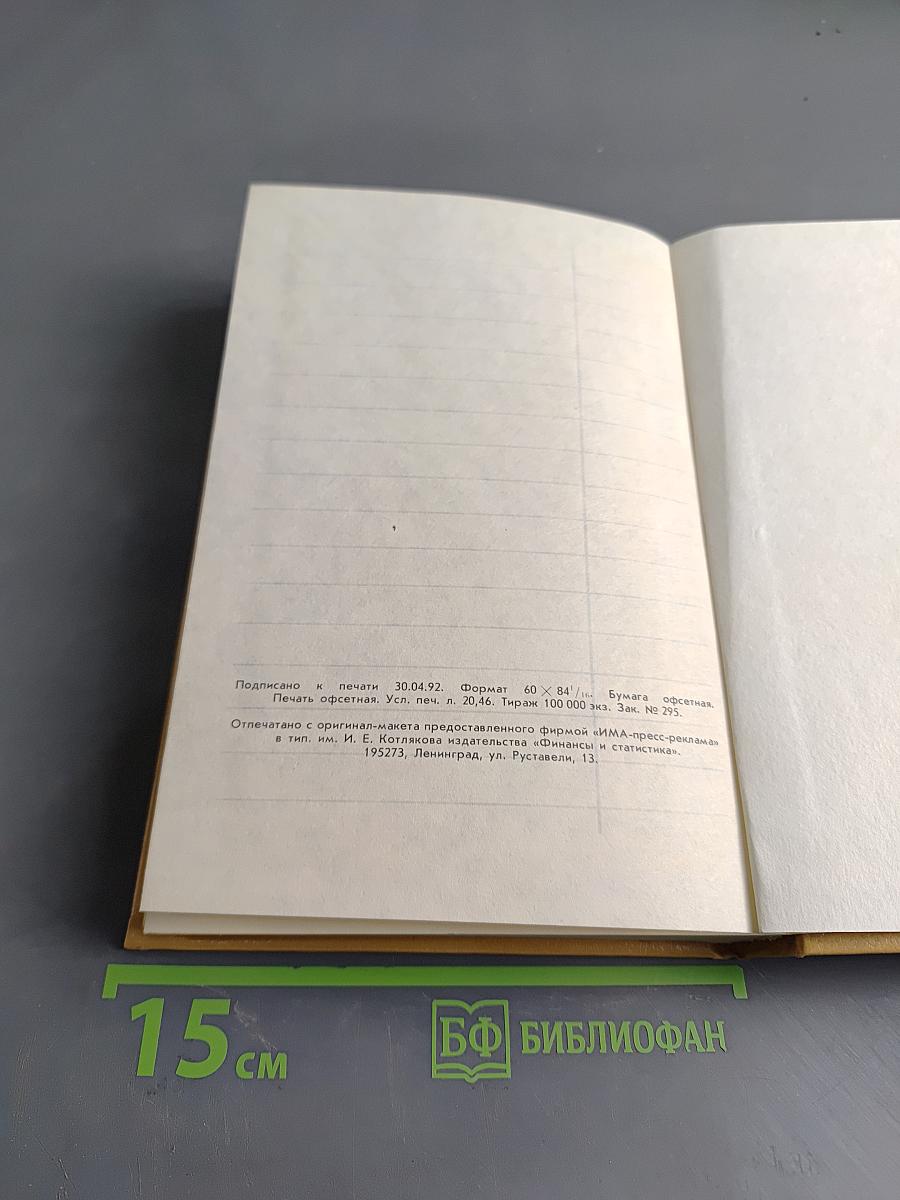 Подписано к печати 30.04.92. Формат 60 × 84¹/₁₆. Бумага офсетная.
Печать офсетная. Усл. печ. л. 20,46. Тираж 100 000 экз. Зак. № 295.
Отпечатано с оригинал-макета предоставленного фирмой «ИМА-пресс-реклама»
в тип. им. И. Е. Котлякова издательства «Финансы и статистика».
195273, Ленинград, ул. Руставели, 13.
15 см
БФ БИБЛИОФАН